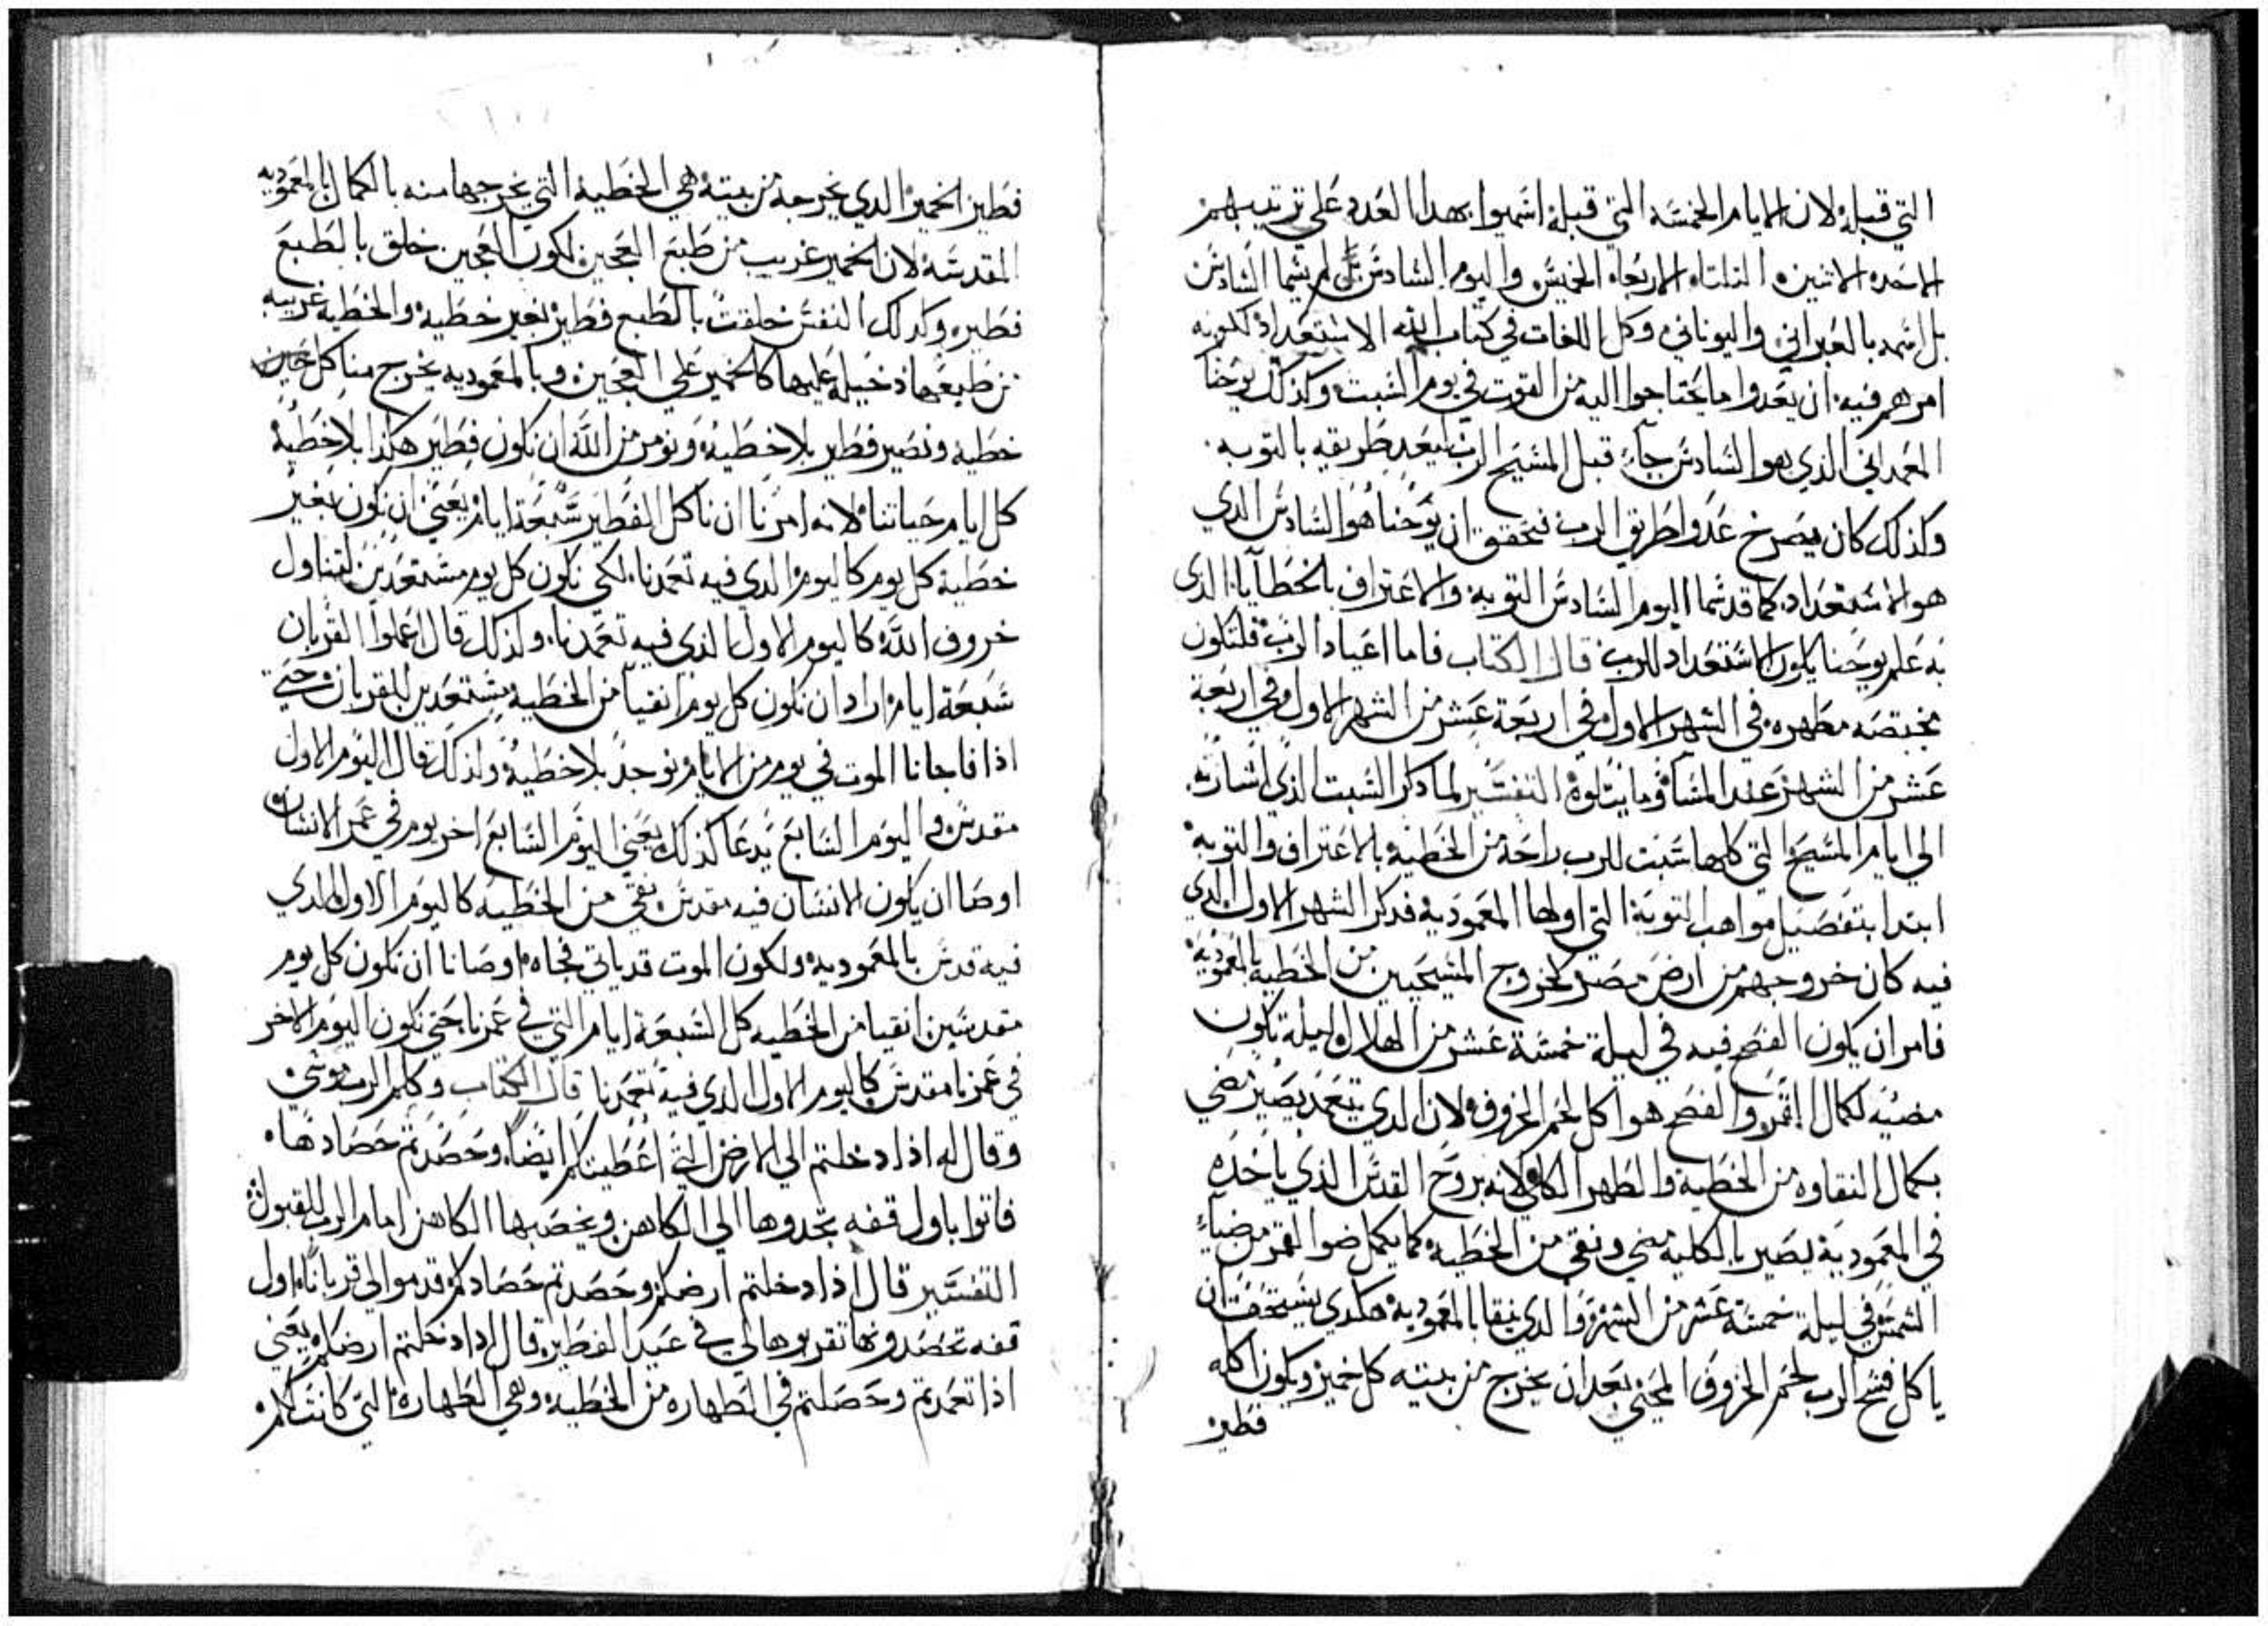 التي قبله لان الايام الخمسه التي قبله اسميوا بهدا العدد علي ترتيبهم
الاحد الاتنين التلتاء الاربعاء الخميس واليوم السادس لم يسما السادس
بل اسمه بالعبراني واليوناني وكل اللغات في كتاب الله الاستعداد لكونه
امرهم فيه ان يعدوا ما يحتاجوا اليه من القوت في يوم السبت وكذلك يوحنا
المعمداني الذي هو السادس جاء قبل المسيح الرب ليعد طريقه بالتوبه
وكذلك كان يصرخ عدوا طريق الرب فتحقق ان يوحنا هو السادس الدي
هو الاستعداد كما قد سما اليوم السادس التوبه والاعتراف بالخطايا الذي
به علم يوحنا يكون الاستعداد للرب قال الكتاب فاما اعياد الرب فلتكون
مختصه مطهره في الشهر الاول في اربعة عشر من الشهر الاول وفي اربعة
عشر من الشهر عند المسا وما يتلوه التفسير لما دكر السبت الذي اشار به
الي ايام المسيح التي كلها سبت للرب راحة من الخطيه بالاعتراف والتوبه
ابتدا بتفصيل مواهب التوبة التي اولها المعموديه فدكر الشهر الاول الدي
فيه كان خروجهم من ارض مصر كخروج المسيحيين من الخطيه بالمعموديه
فامر ان يكون الفصح فيه في ليلة خمسة عشر من الهلال ليلة تكون
مضيه لكمال القمر والفصح هو اكل لحم الخروف لان الدي يتعمد يصير مضي
بكمال النقاوه من الخطيه والطهر الكامل لانه بروح القدس الذي ياخده
في المعموديه يصير بالكليه مضي ونقي من الخطيه كما يكمل ضوا القمر من ضياء
الشمس في ليلة خمسة عشر من الشهر والدي ينقا بالمعموديه هكدي يستحق ان
ياكل فسح الرب لحم الخروف المحيي بعد ان يخرج من بيته كل خمير ويكون اكله
فطير
فطير الخمير الدي يخرجه من بيته هي الخطيه التي يخرجها منه بالكمال بالمعموديه
المقدسه لان الخمير غريب من طبع العجين لكون العجين خلق بالطبع
فطير وكدلك النفس خلقت بالطبع فطير بغير خطيه والخطيه غريبه
من طبعها دخيله عليها كالخمير علي العجين وبالمعموديه يخرج منا كل
خطيه ونصير فطير بلا خطيه ونومر من الله ان نكون فطير هكذا بلا خطيه
كل ايام حياتنا لانه امرنا ان ناكل الفطير سبعة ايام يعني ان نكون بغير
خطيه كل يوم كاليوم الدي فيه تعمدنا لكي نكون كل يوم مستعدين لتناول
خروف الله كاليوم الاول الذي فيه تعمدنا ولذلك قال اعملوا القربان
سبعة ايام اراد ان نكون كل يوم انقيا من الخطيه مستعدين للقربان حتي
اذا فاجانا الموت في يوم من الايام نوجد بلا خطيه ولذلك قال اليوم الاول
مقدس واليوم السابع يدعا كذلك يعني اليوم السابع اخر يوم في عمر الانسان
اوصا ان يكون الانسان فيه مقدس نقي من الخطيه كاليوم الاول الدي
فيه قدس بالمعموديه ولكون الموت قد ياتي فجاه اوصانا ان نكون كل يوم
مقدسين انقيا من الخطيه كل السبعة ايام التي في عمرنا حتي نكون اليوم الاخر
في عمرنا مقدس كاليوم الاول الدي فيه تعمدنا قال الكتاب وكلم الرب موسي
وقال له اذا دخلتم الي الارض التي اعطيتكم ايضا وحصدتم حصادها
فاتوا باول قفه تحدوها الي الكاهن ويخصبها الكاهن امام الرب للقبول
التفسير قال اذا دخلتم ارضكم وحصدتم حصادكم قدموا لي قربانا اول
قفه تحصدونها تقربوها لي في عيد الفطير قال ادا دخلتم ارضكم يعني
اذا تعمدتم وحصلتم في الطهاره من الخطيه وهي الطهارة التي كانت لكم